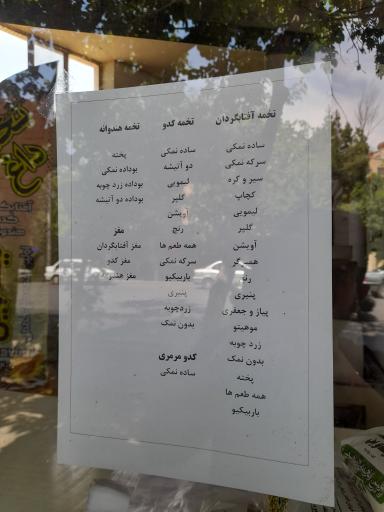 تخمه آفتابگردان
ساده نمکی
سرکه نمکی
سیر و کره
کچاپ
لیمویی
گلپر
آویشن
همبرگر
رنچ
پنیری
پیاز و جعفری
موهیتو
زرد چوبه
بدون نمک
پخته
همه طعم ها
باربیکیو
تخمه کدو
ساده نمکی
دو آتیشه
لیمویی
گلپر
آویشن
رنچ
همه طعم ها
سرکه نمکی
باربیکیو
پنیری
زردچوبه
بدون نمک
کدو مرمری
ساده نمکی
تخمه هندوانه
پخته
بوداده نمکی
بوداده زرد چوبه
بوداده دو آتیشه
مغز
مغز آفتابگردان
مغز کدو
مغز